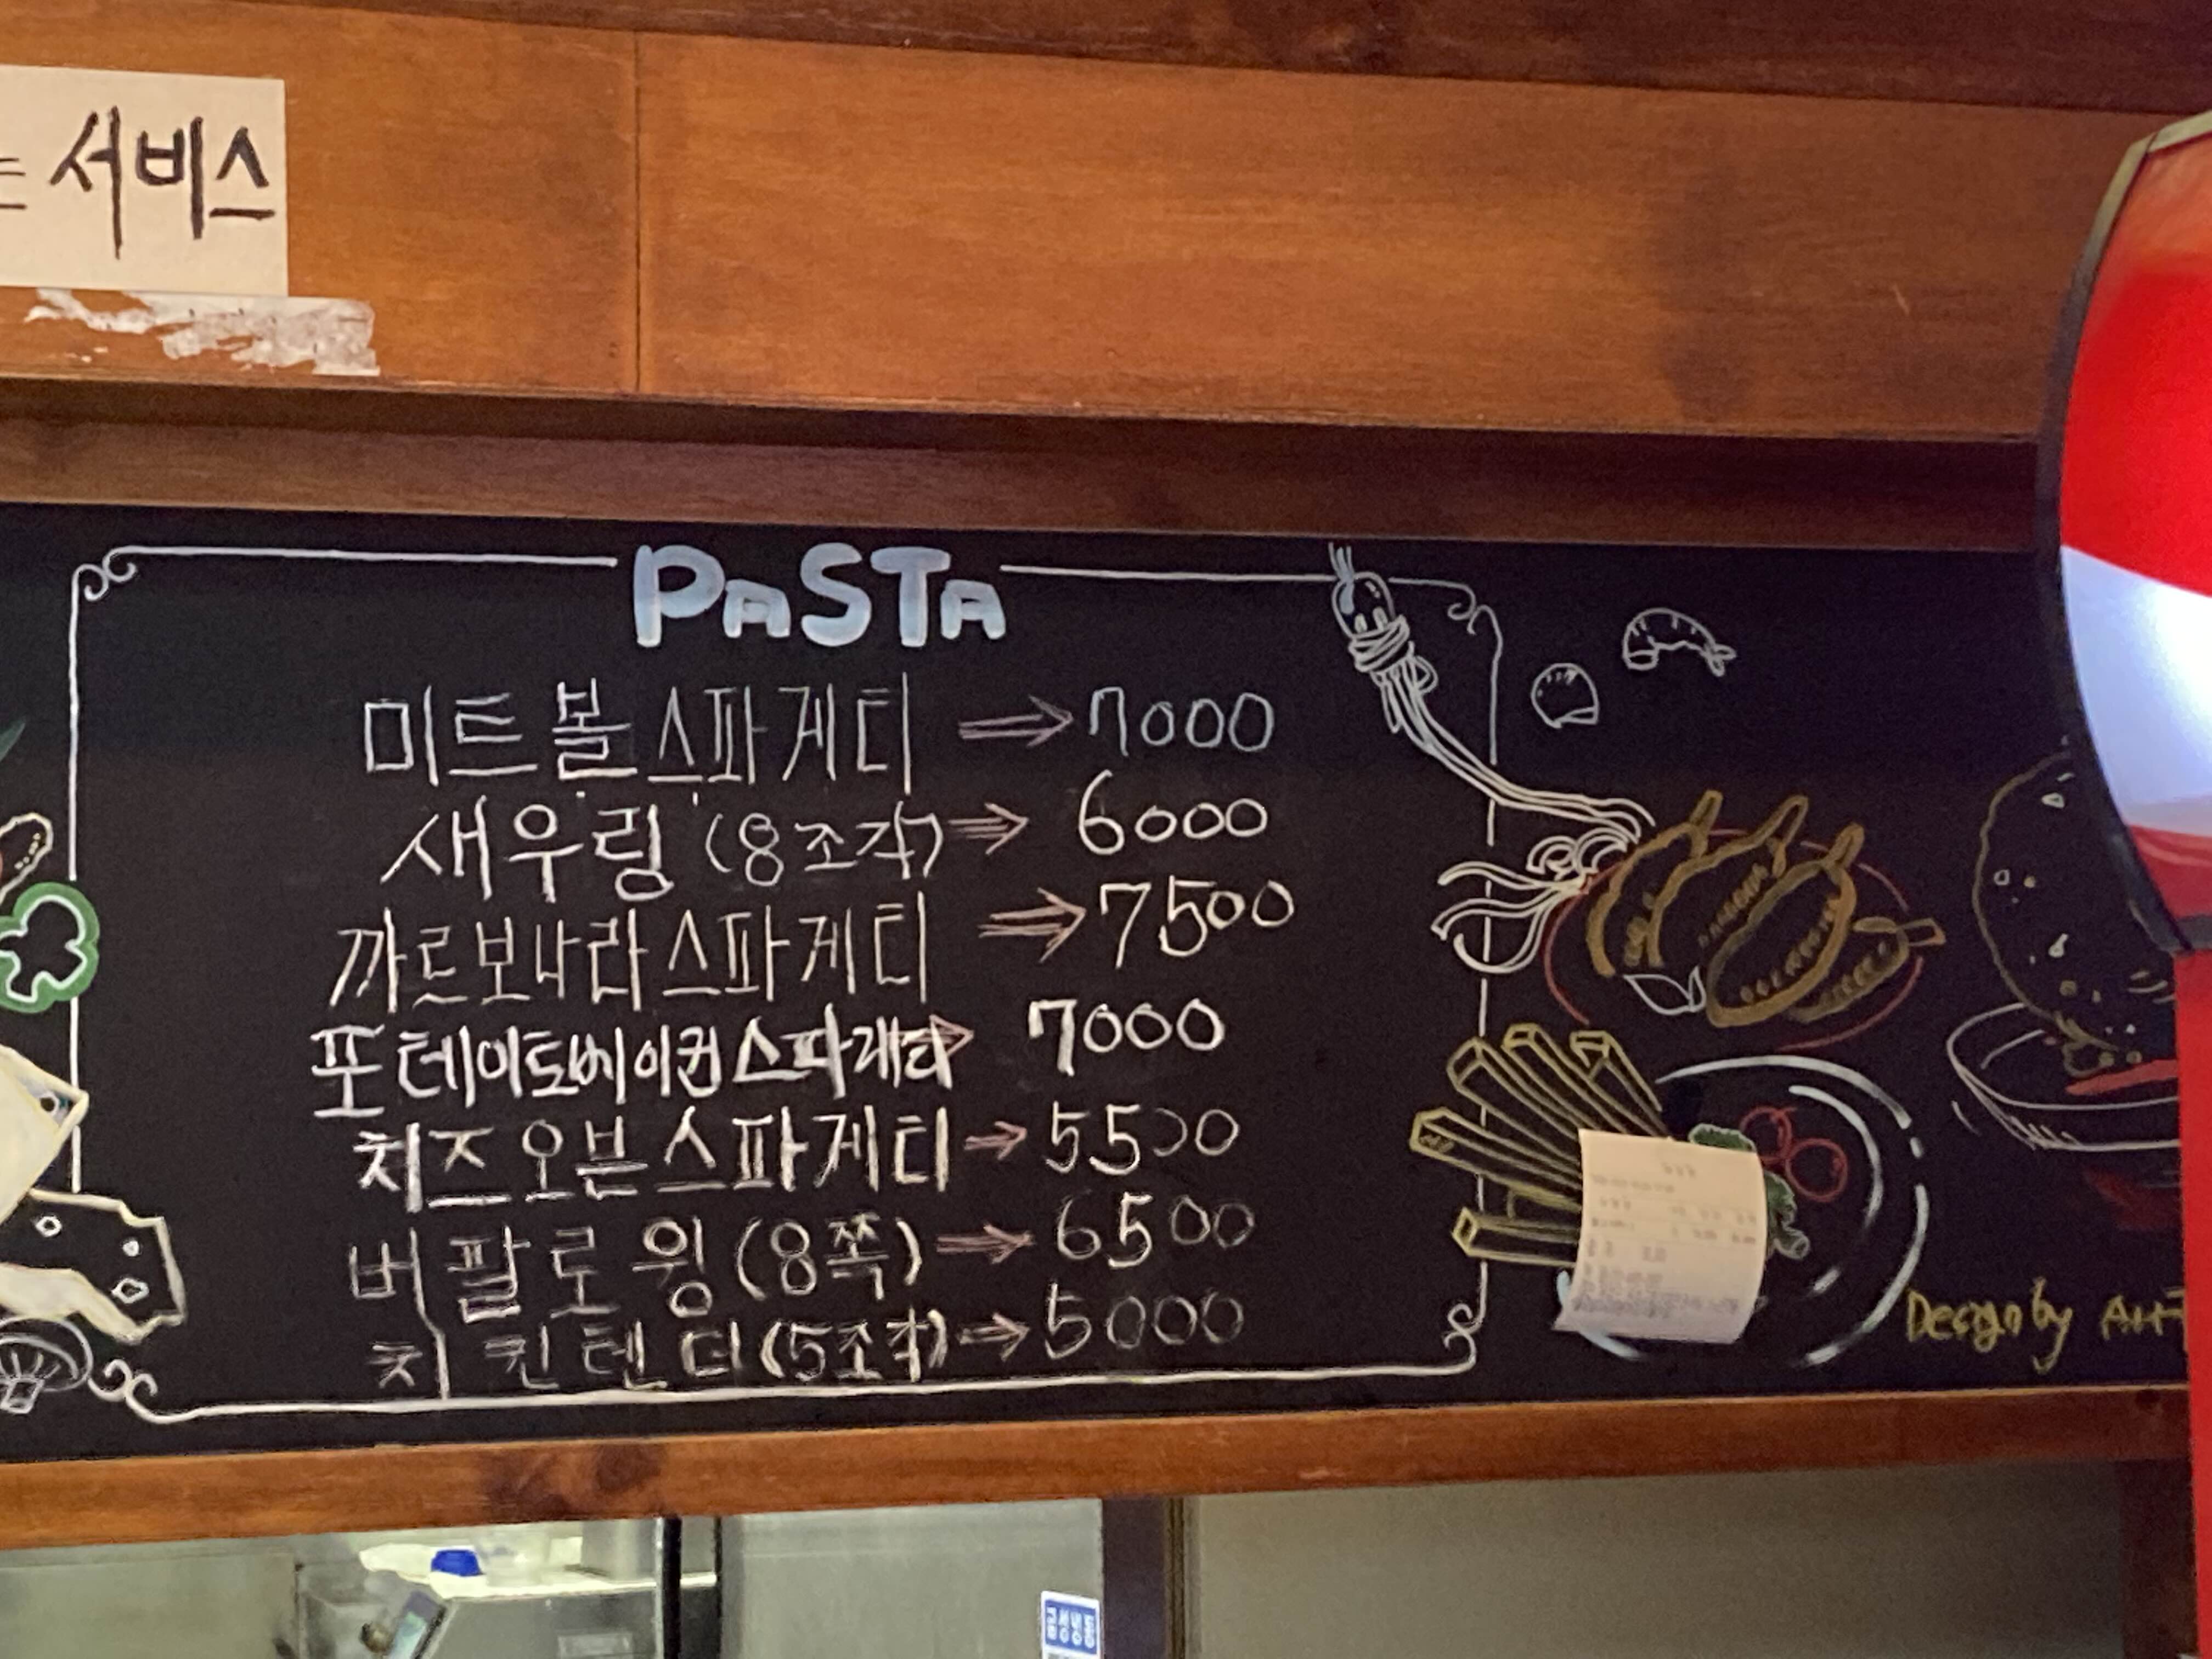 서비스
PASTA
미트볼스파게티 ⇒ 7000
새우링 (8조각) ⇒ 6000
까르보나라스파게티 ⇒ 7500
포테이토베이컨스파게티 ⇒ 7000
치즈오븐스파게티 → 5500
버팔로윙 (8쪽) ⇒ 6500
치킨텐더 (5조각) ⇒ 5000
Design by